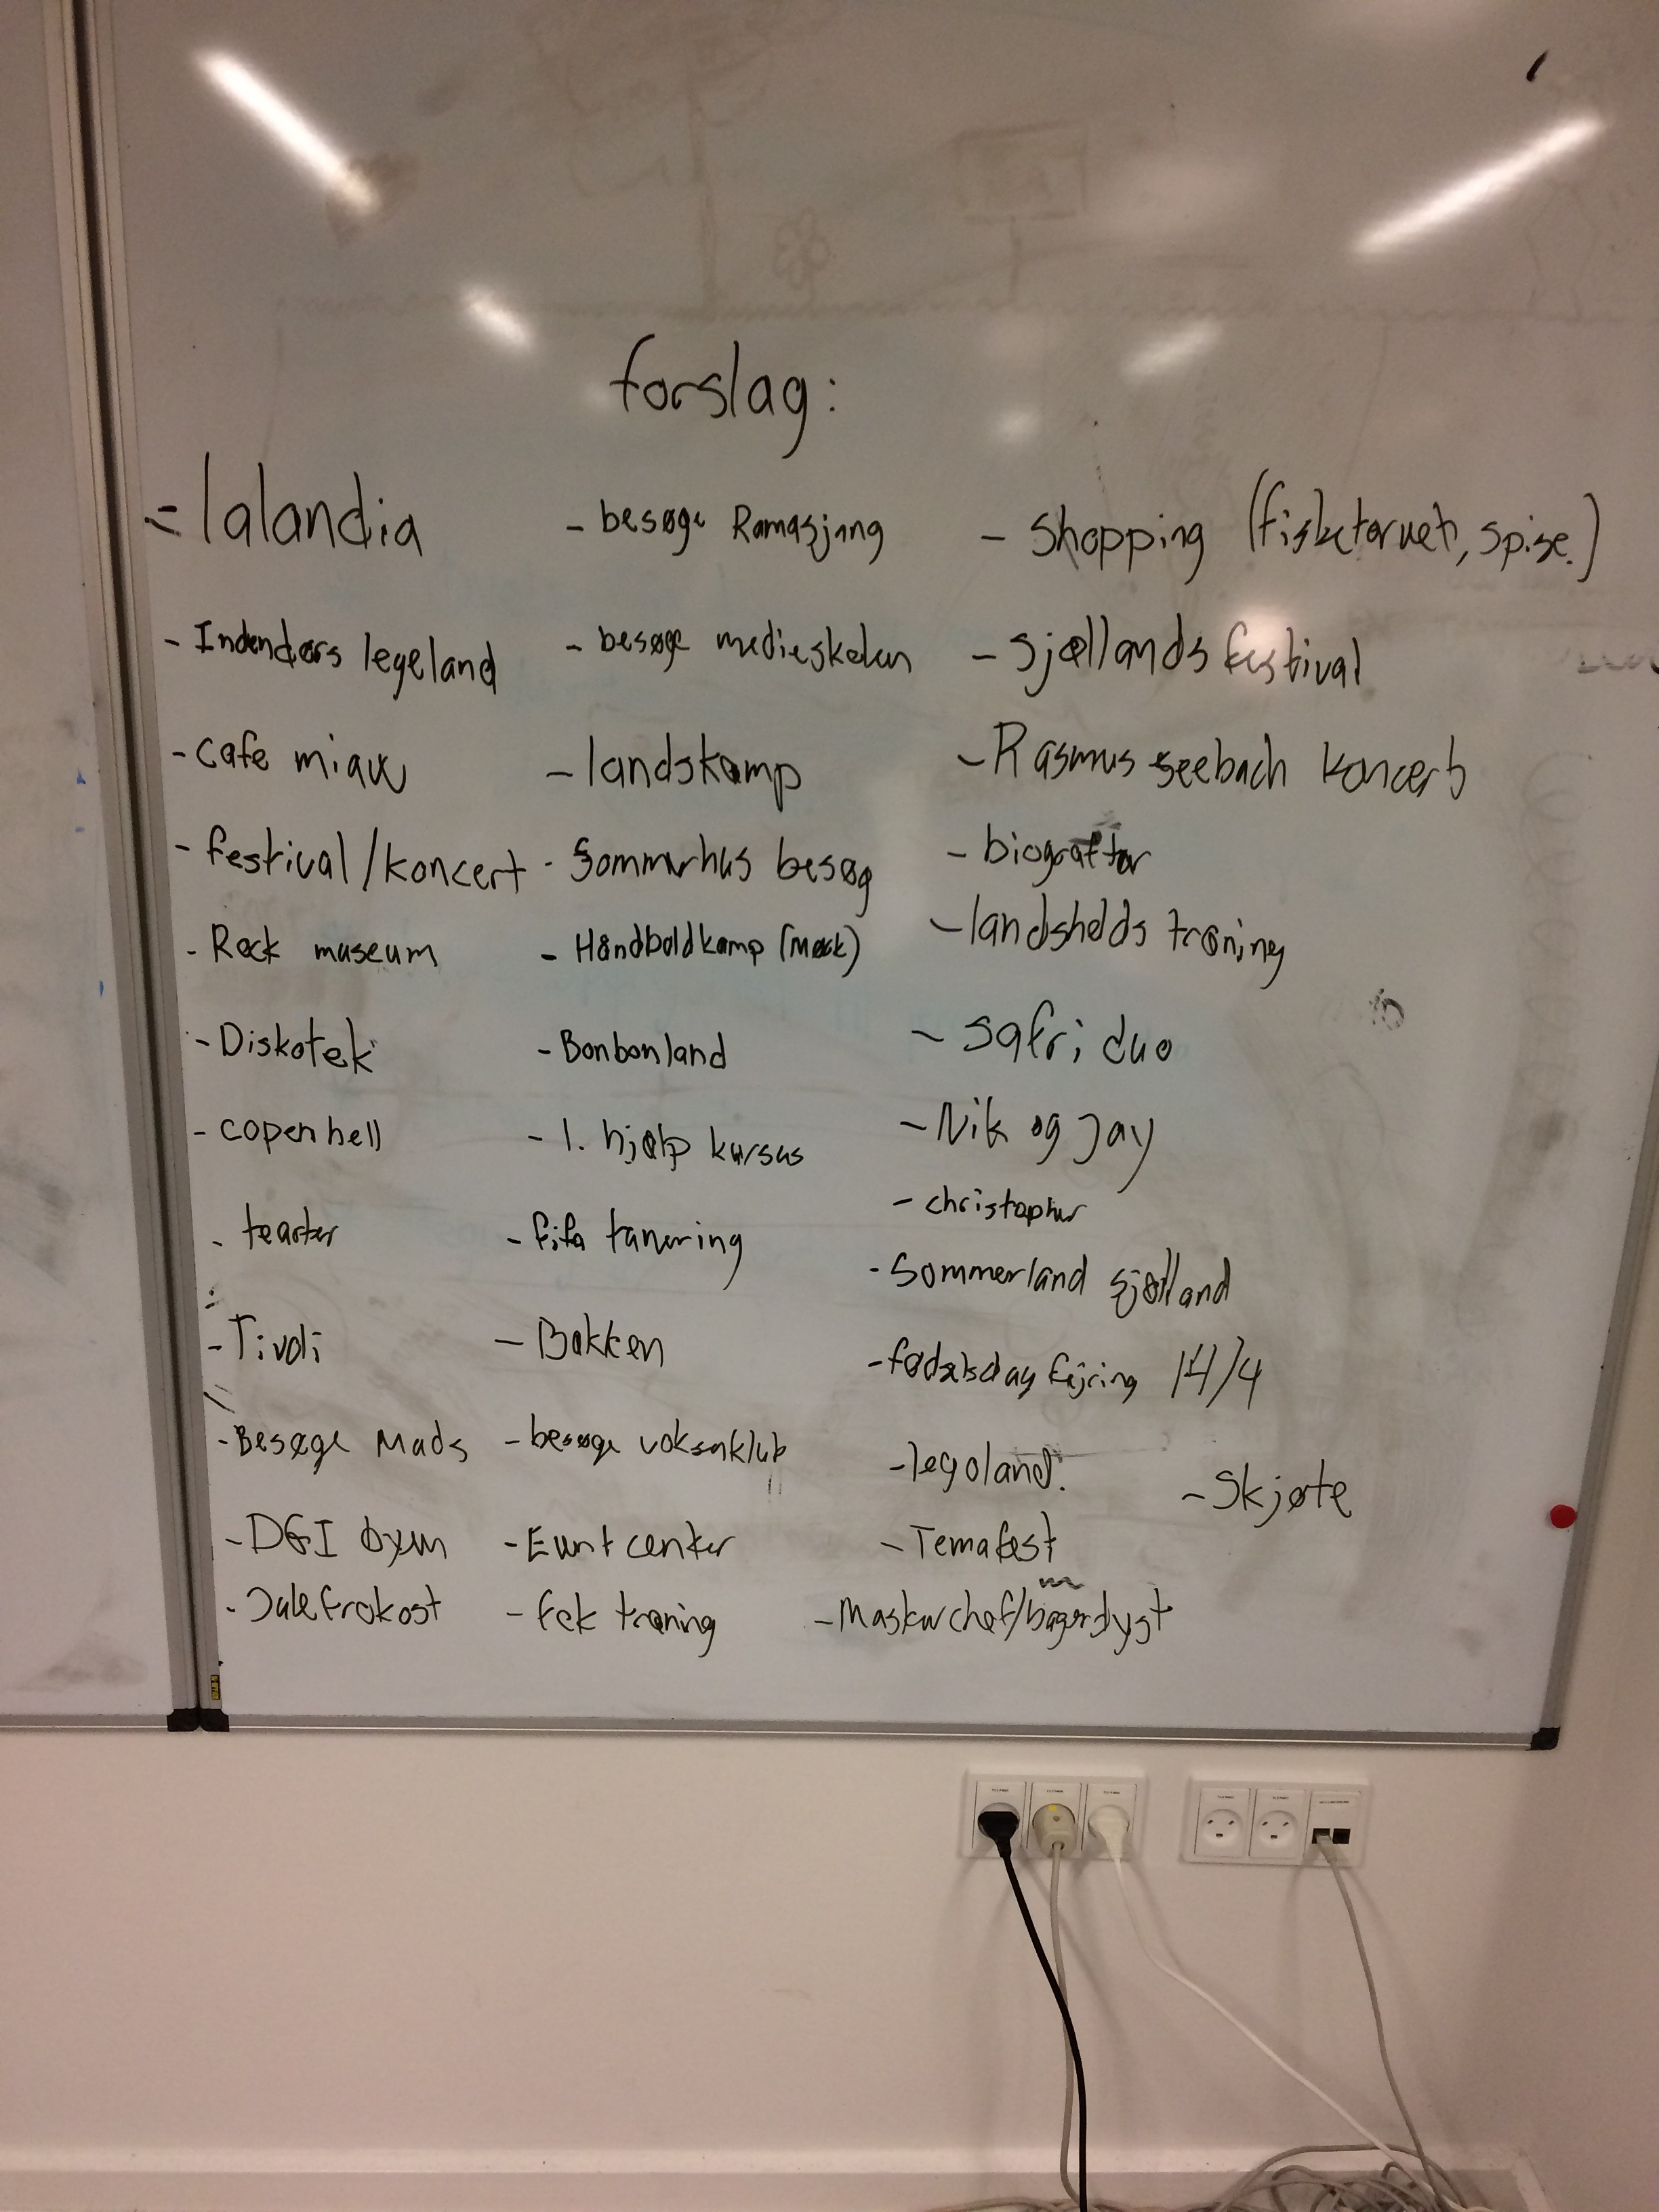 forslag:
- lalandia
- Indendørs legeland
- cafe miau
- festival/koncert
- Rock museum
- Diskotek
- copenhell
- tearter
- Tivoli
- Besøge Mads
- DGI byen
- Julefrokost
- besøge Ramasjang
- besøge medieskolen
- landskamp
- Sommerhus besøg
- Håndboldkamp (Mørk)
- Bonbonland
- 1. hjælp kursus
- fifa tunering
- Bakken
- besøge voksenklub
- Event center
- fck træning
- Shopping (fisketorvet, spise.)
- Sjællands festival
- Rasmus seebach koncert
- biograftur
- landsholds træning
- Safri duo
- Nik og Jay
- christopher
- Sommerland sjælland
- fødselsdag fejring 14/4
- legoland.
- Skjøte
- Temafest
- Masterchef/bagerdyst